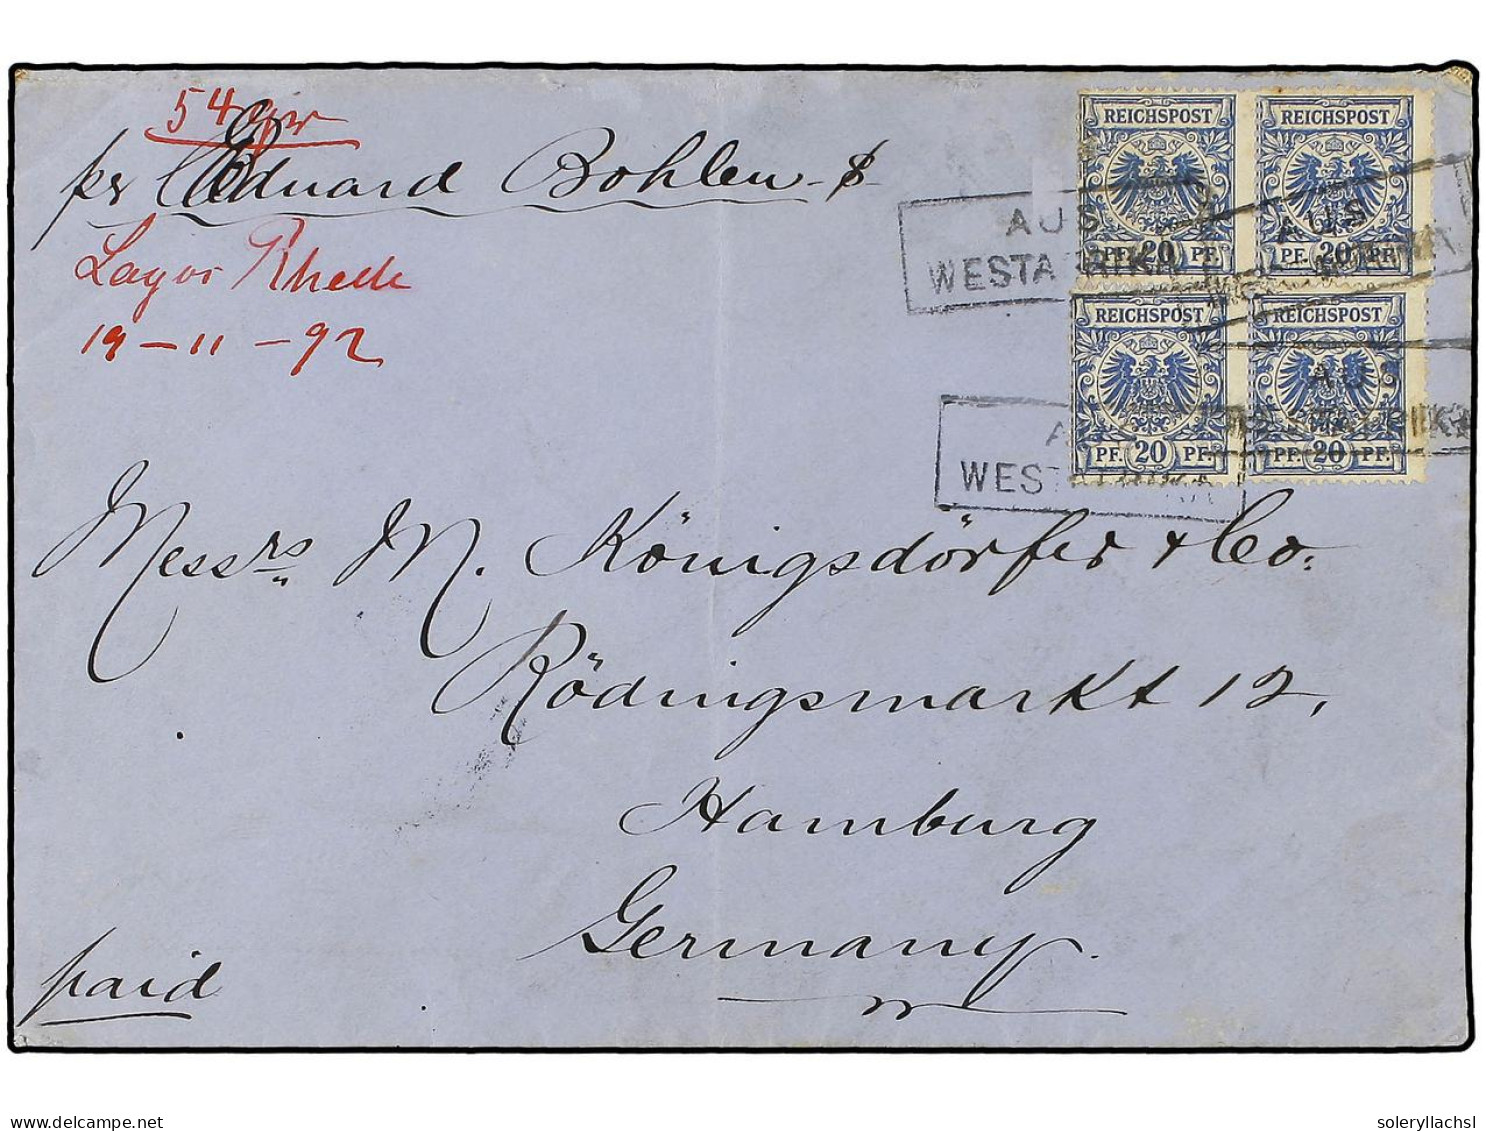 54 gr
per Eduard Bohlen
Lagos Rhede
19-11-92
REICHSPOST REICHSPOST
PF. 20 PF. PF. 20 PF.
REICHSPOST REICHSPOST
PF. 20 PF. PF. 20 PF.
AUS
WESTAFRIKA
AUS
WESTAFRIKA
AUS
WESTAFRIKA
AUS
WESTAFRIKA
Messrs M. Königsdörfer & Co.
Rödingsmarkt 12,
Hamburg
Germany.
paid
delcampe.net
soleryllachsl